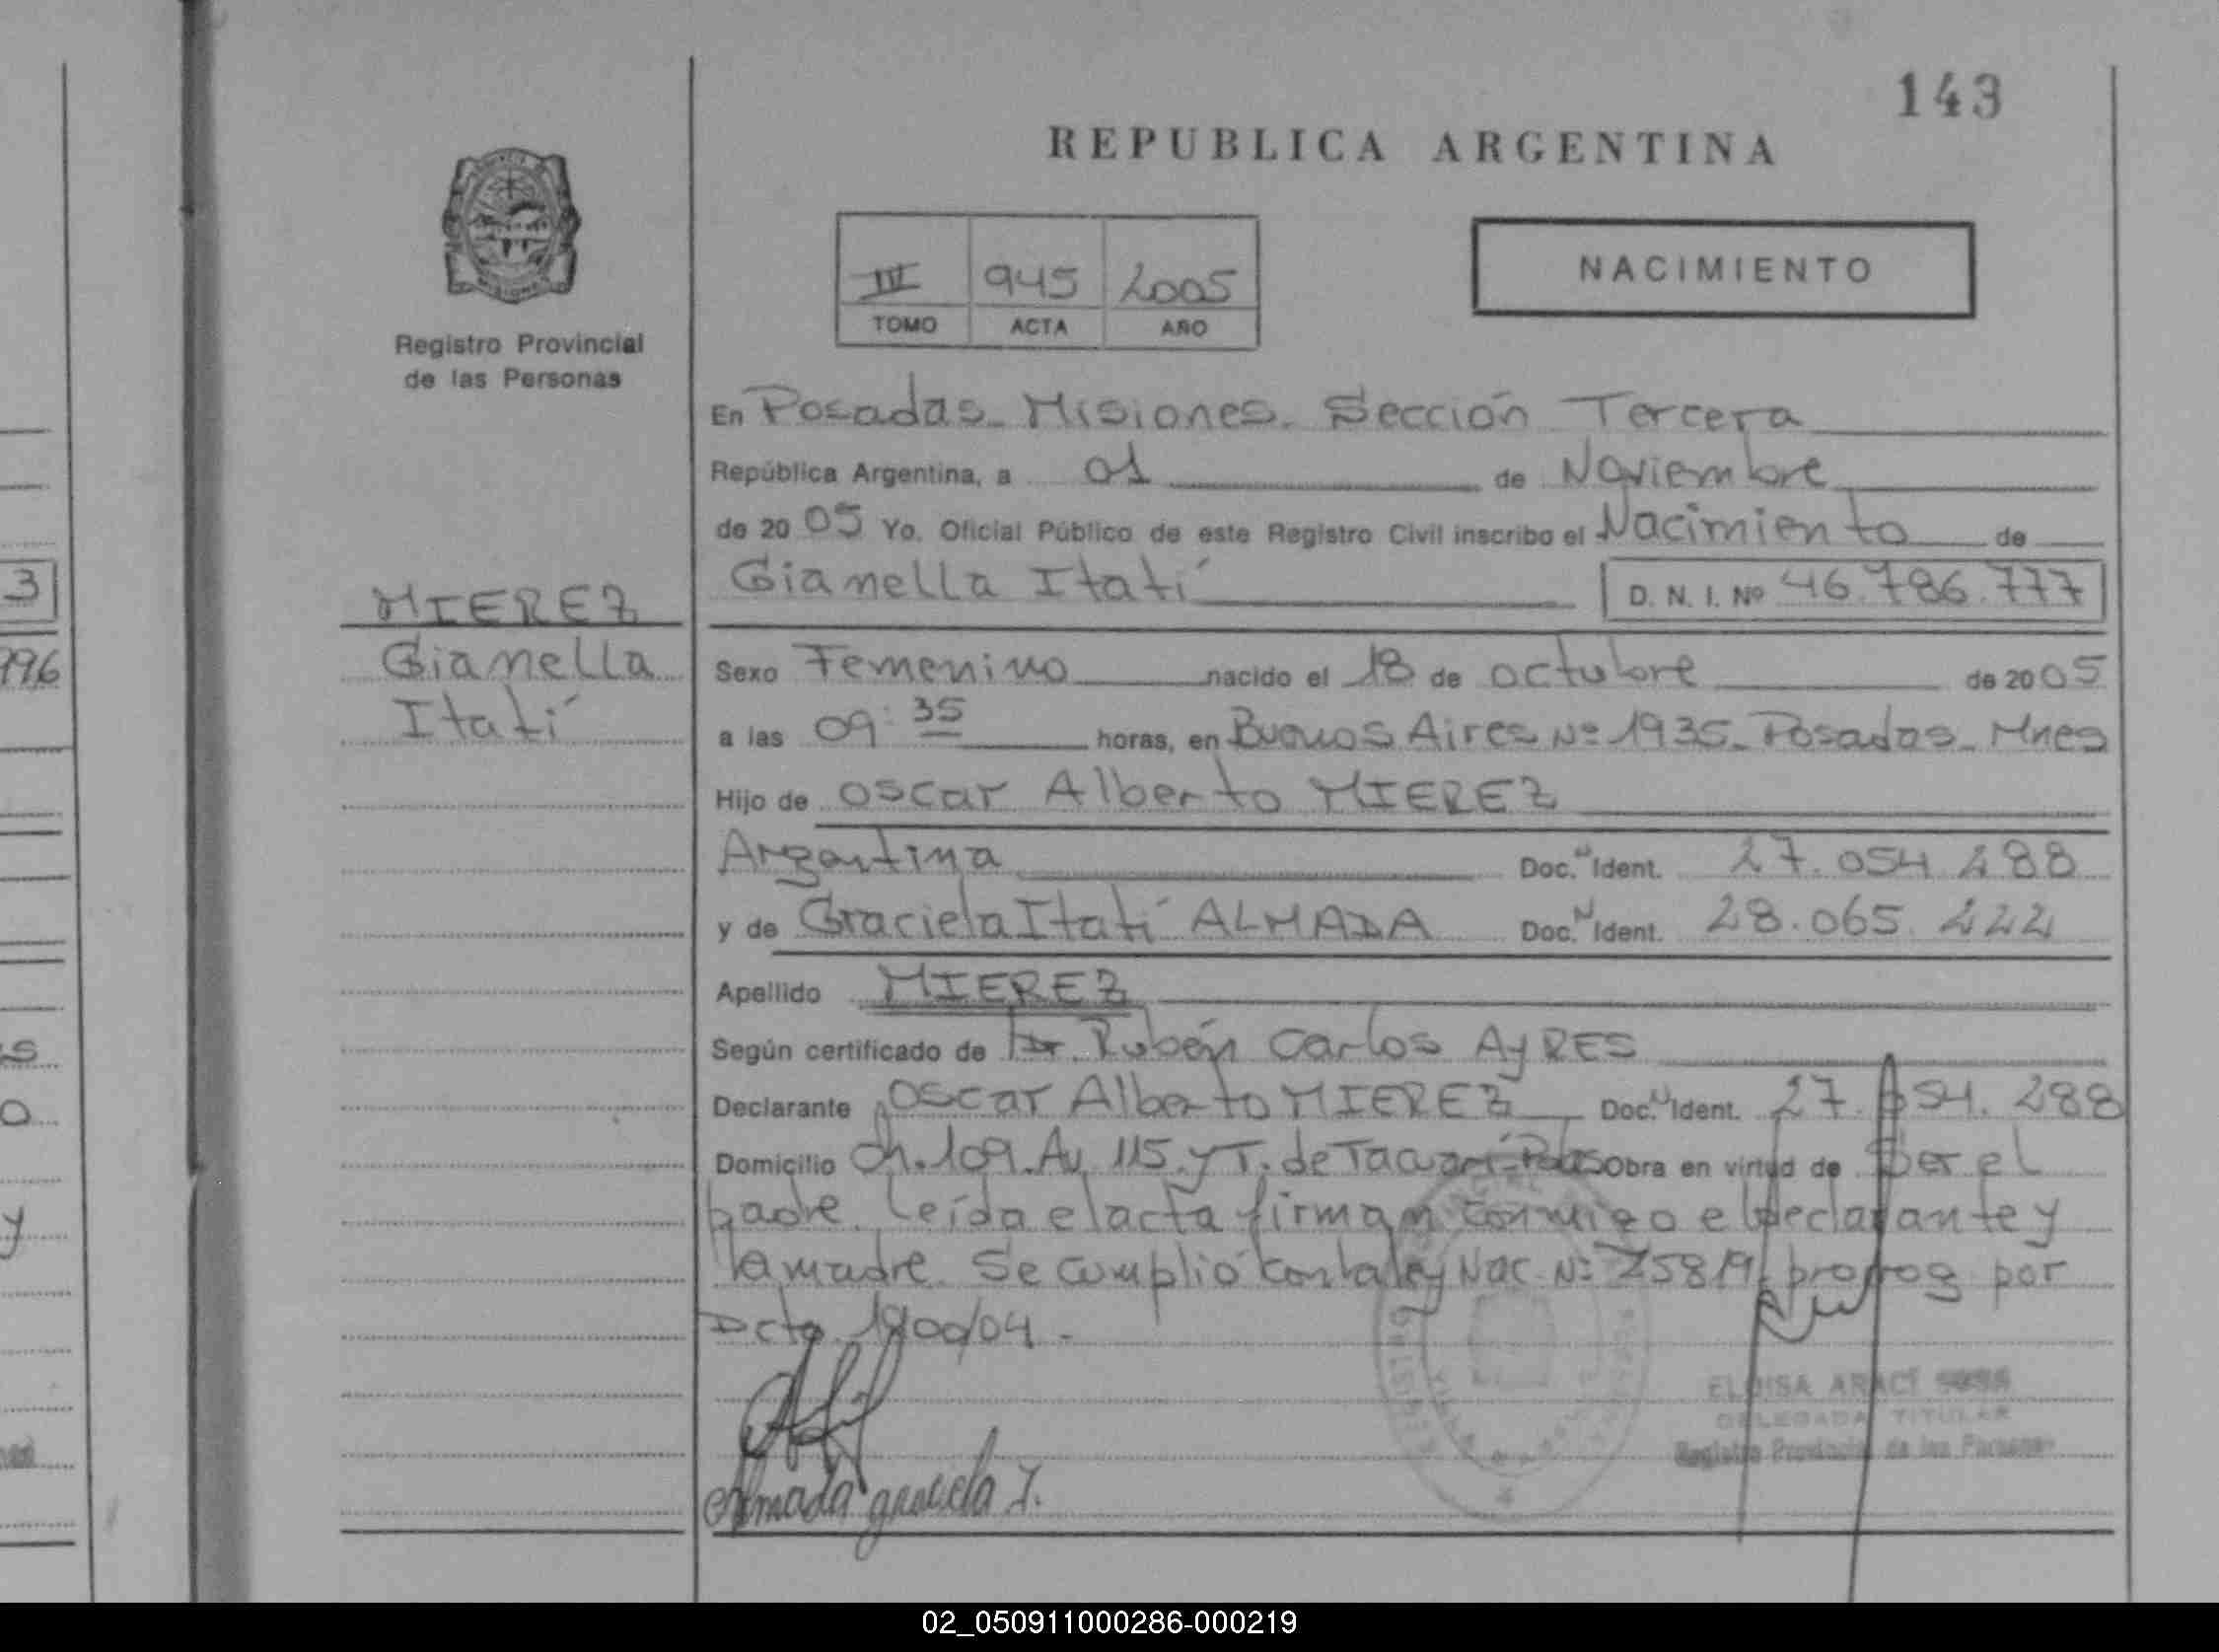 143
REPUBLICA ARGENTINA
III 945 2005
TOMO ACTA AÑO
NACIMIENTO
Registro Provincial
de las Personas
En Posadas - Misiones. Sección Tercera
República Argentina, a 01 de Noviembre
de 20 05 Yo. Oficial Público de este Registro Civil inscribo el Nacimiento de
Gianella Itatí D. N. I. Nº 46.786.777
MIEREZ
Gianella
Itatí
Sexo Femenino nacido el 18 de octubre de 20 05
a las 09:35 horas, en Buenos Aires Nº 1935 - Posadas - Mnes
Hijo de Oscar Alberto MIEREZ
Argentina Doc. N Ident. 27.054.288
y de Graciela Itatí ALMADA Doc. N Ident. 28.065.222
Apellido MIEREZ
Según certificado de Dr. Rubén Carlos AyRES
Declarante Oscar Alberto MIEREZ Doc. N Ident. 27.054.288
Domicilio Ch. 109. Av. 115. y T. de Tacuarí - Pdas Obra en virtud de Ser el
padre. Leída el acta firman conmigo el declarante y
la madre. Se cumplió con la ley Nac. Nº 25819 prorrog por
Dcto 1900/04 -
Almada graciela I.
ELOISA ARACI
DELEGADA TITULAR
Registro Provincial de las Personas
3
996
02_050911000286-000219